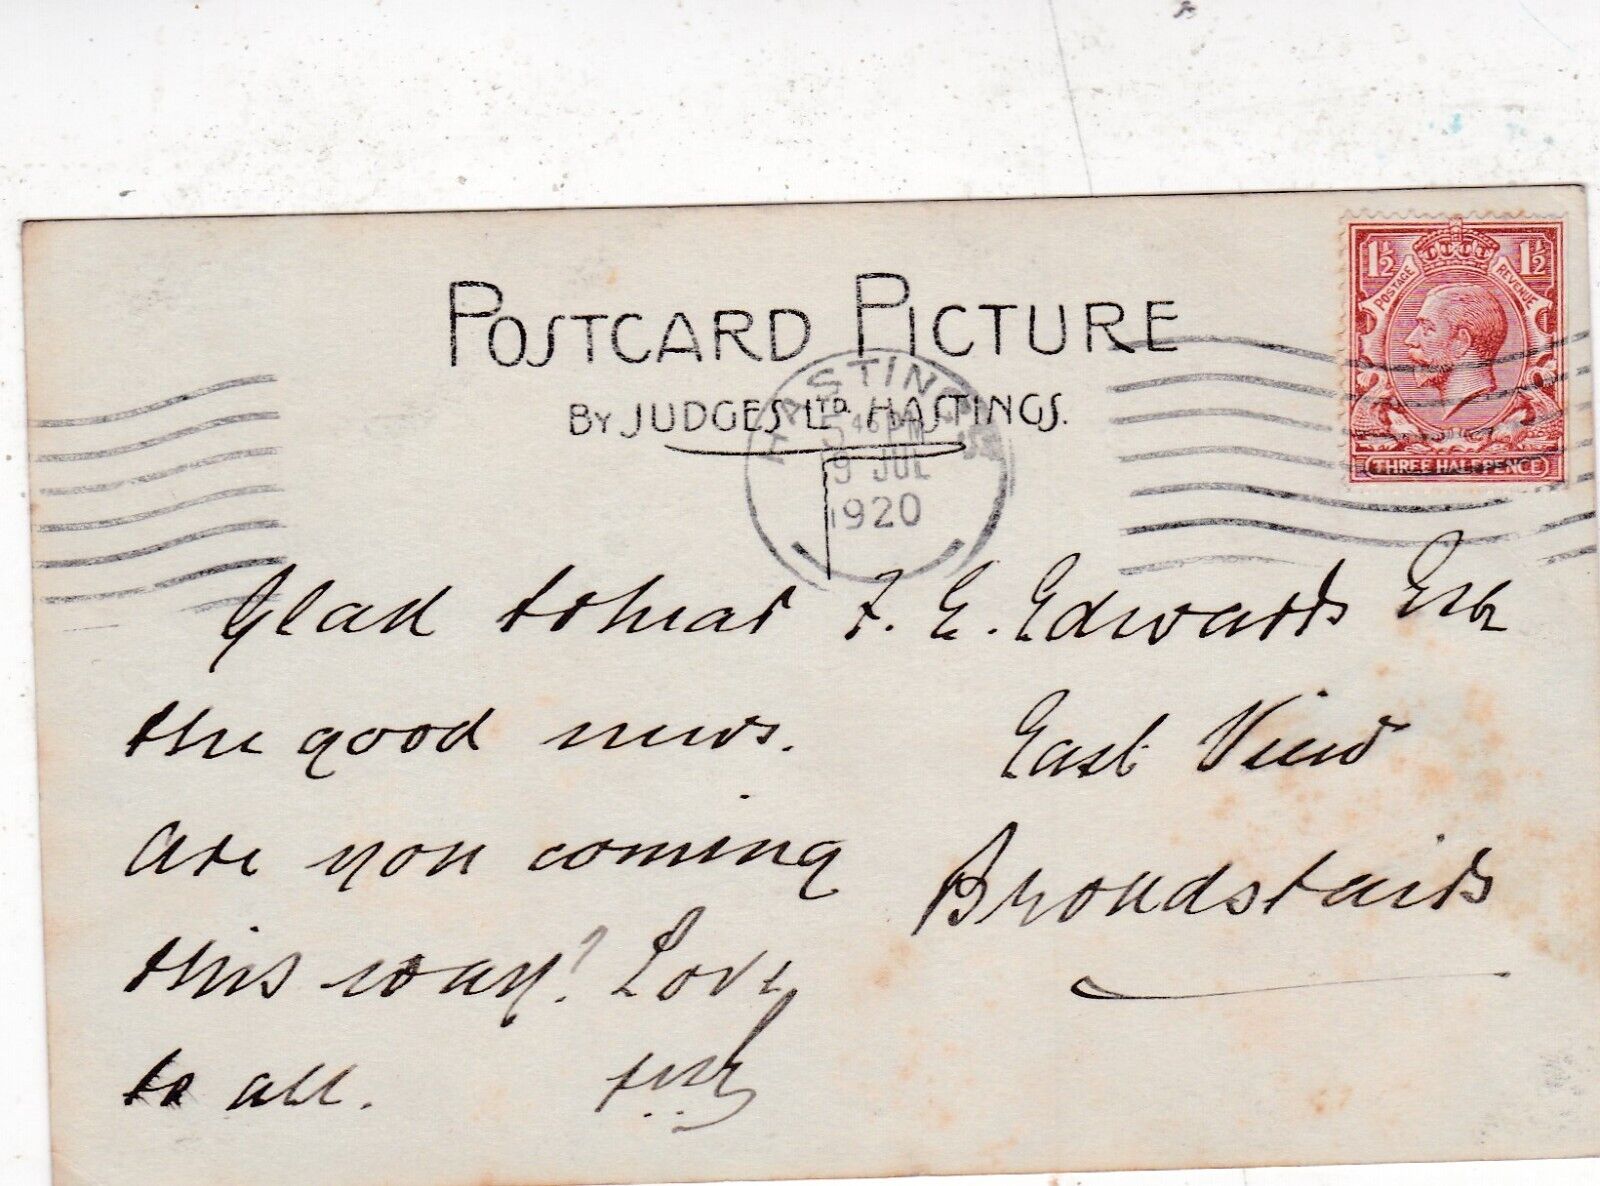 POSTCARD PICTURE
BY JUDGES LTD. HASTINGS.
1½ 1½
POSTAGE REVENUE
THREE HALFPENCE
HASTINGS
PM
9 JUL
1920
Glad to hear
the good news.
Are you coming
this way? Love
to all.
F. E. Edwards Esq
East View
Broadstairs